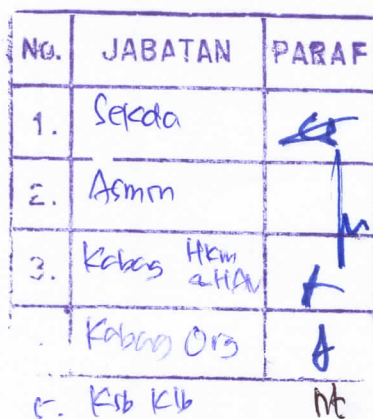 No. JABATAN PARAF
1. Sekda
2. Asmin
3. Kabag Hkm
& HAM
Kabag Org
5. Ksb Klb